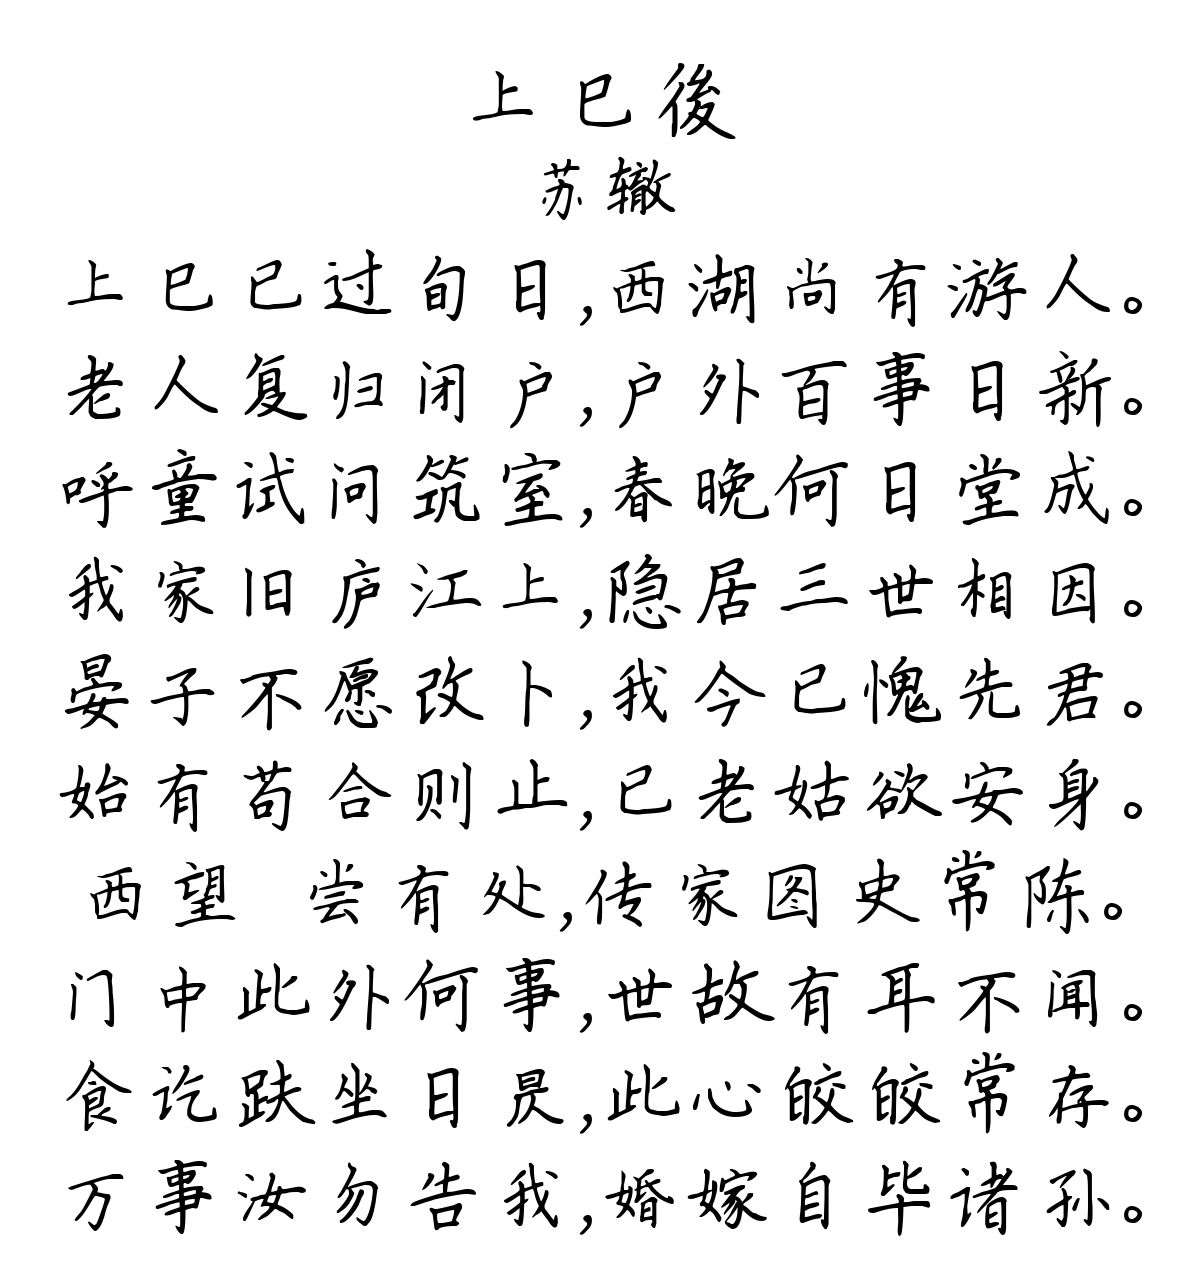 上巳後
苏辙
上巳已过旬日,西湖尚有游人。
老人复归闭户,户外百事日新。
呼童试问筑室,春晚何日堂成。
我家旧庐江上,隐居三世相因。
晏子不愿改卜,我今已愧先君。
始有苟合则止,已老姑欲安身。
西望 尝有处,传家图史常陈。
门中此外何事,世故有耳不闻。
食讫趺坐日昃,此心皎皎常存。
万事汝勿告我,婚嫁自毕诸孙。